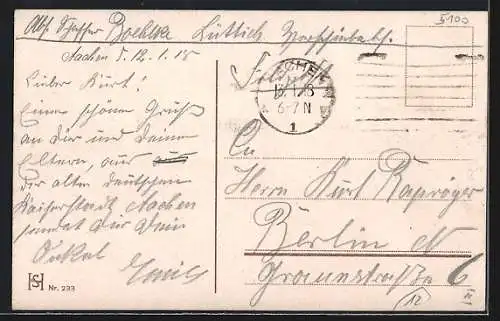 Abs. Schaffer Boehlke Lüttich
5100
Aachen d. 12.1.18
Lieber Kurt!
Einen schönen Gruß
an Dir und Deine
Eltern, aus
der alten deutschen
Kaiserstadt Aachen
sendet Dir Dein
Onkel
Emil
HS Nr. 233
Feldpost
AACHEN
13.1.18
6-7N
1
An
Herrn Kurt
Berlin N
6
12